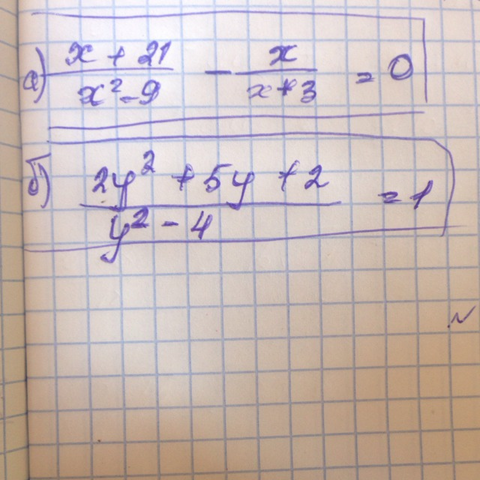 а) (x + 21)/(x² - 9) - x/(x + 3) = 0
б) (2y² + 5y + 2)/(y² - 4) = 1
N